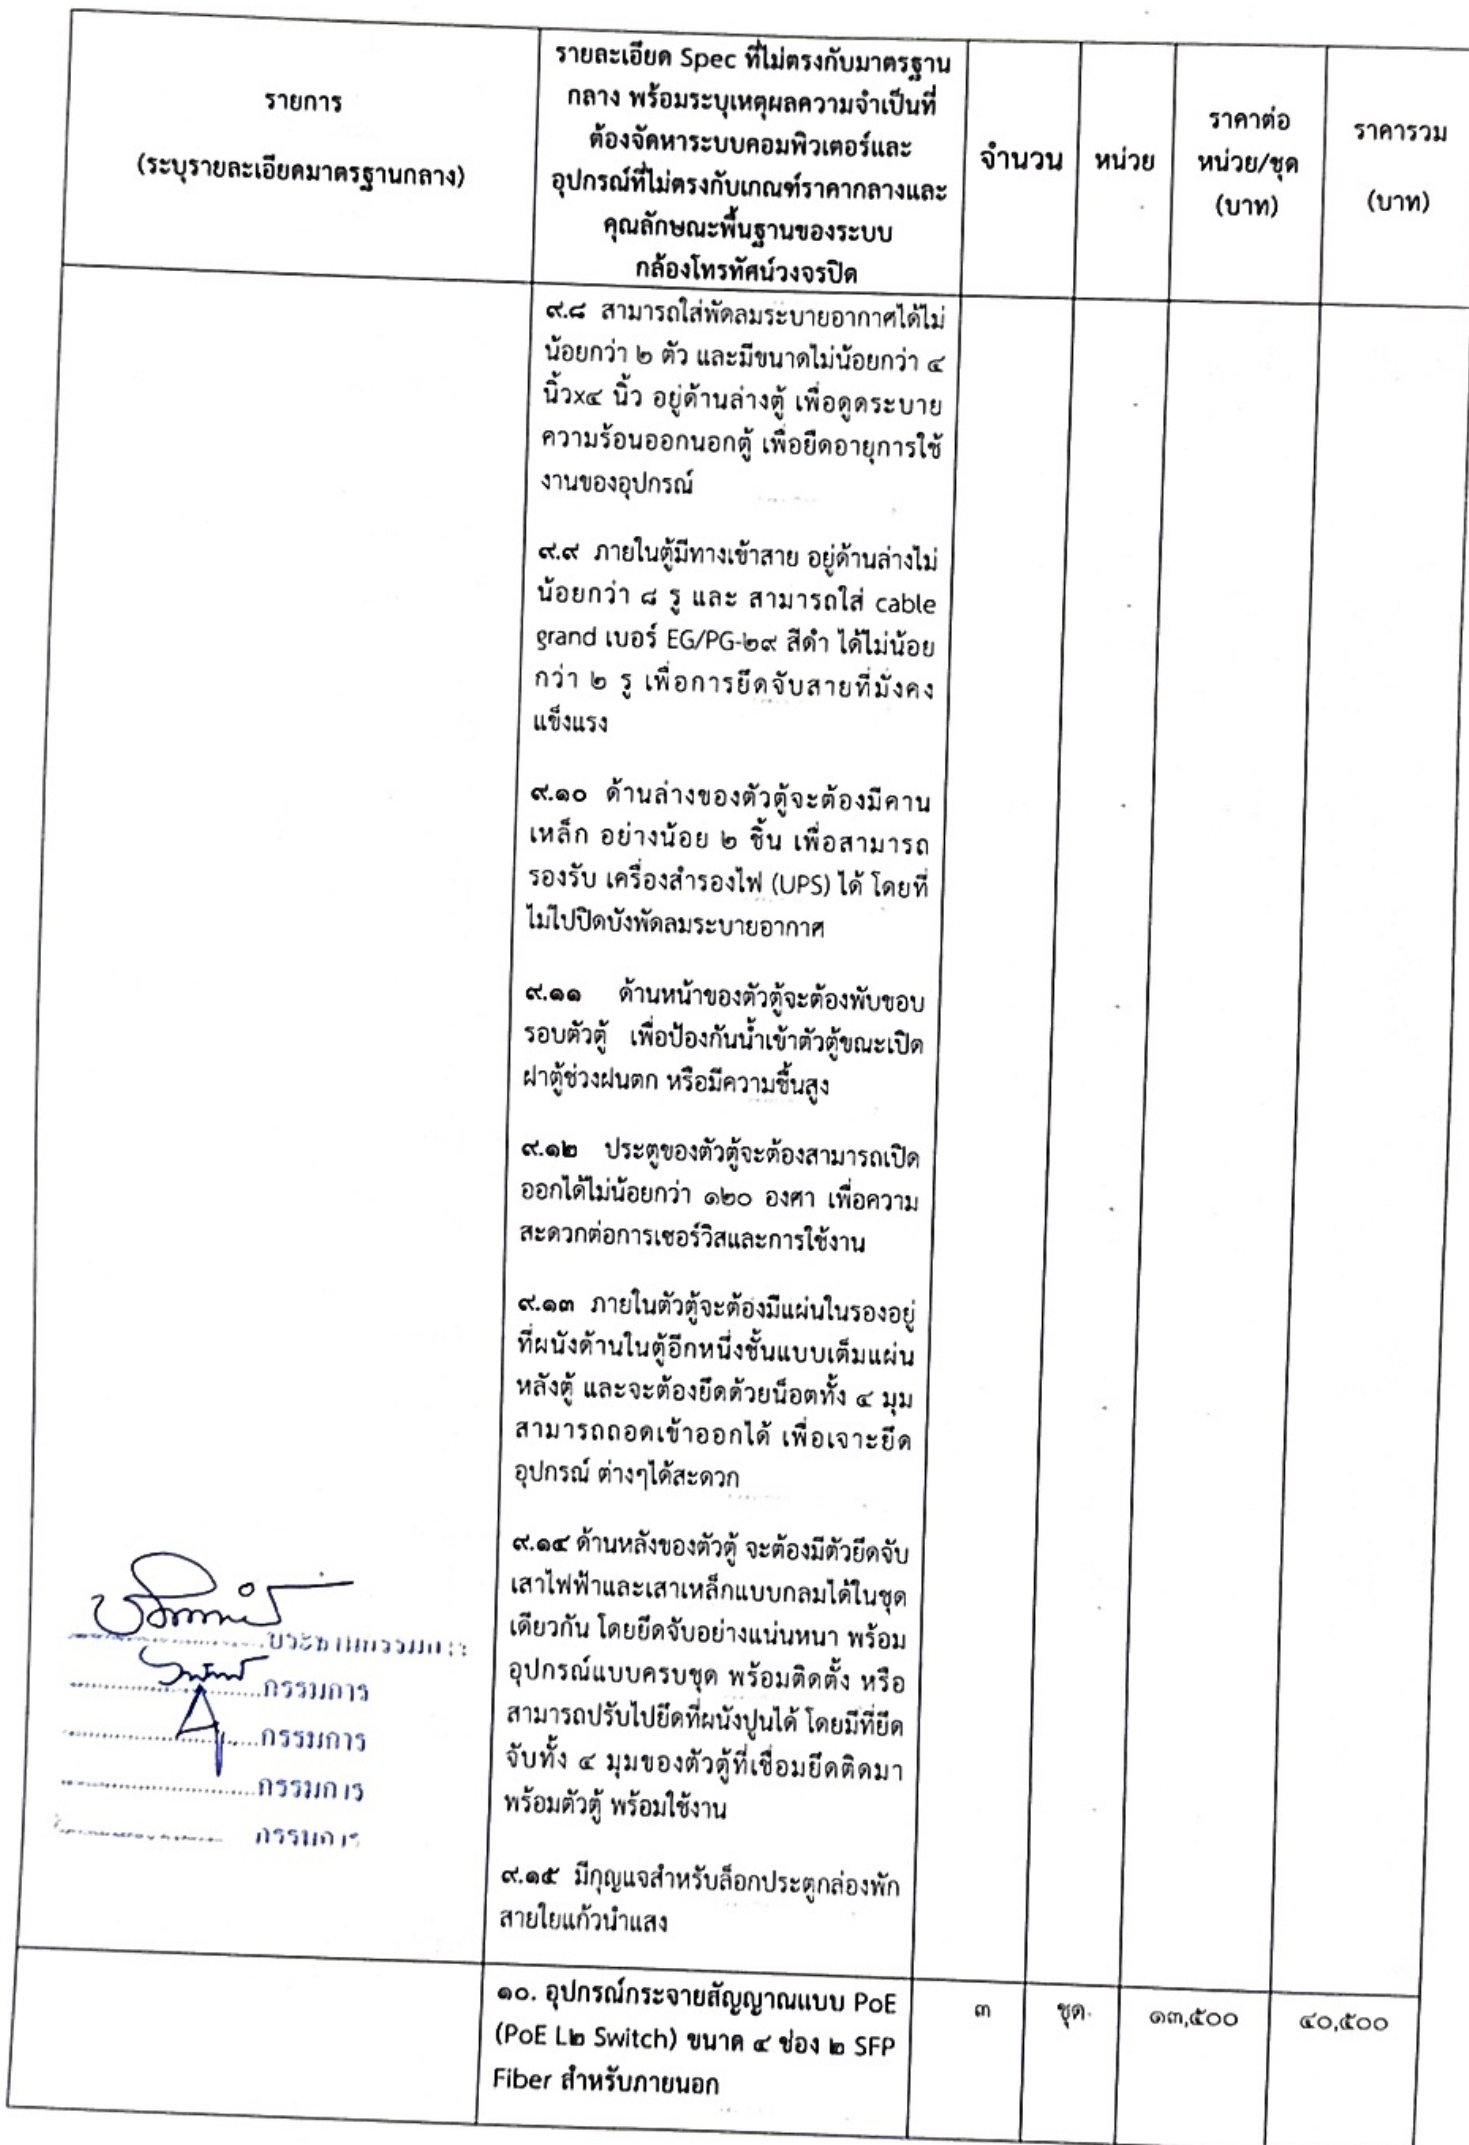 รายการ
(ระบุรายละเอียดมาตรฐานกลาง)
รายละเอียด Spec ที่ไม่ตรงกับมาตรฐาน
กลาง พร้อมระบุเหตุผลความจำเป็นที่
ต้องจัดหาระบบคอมพิวเตอร์และ
อุปกรณ์ที่ไม่ตรงกับเกณฑ์ราคากลางและ
คุณลักษณะพื้นฐานของระบบ
กล้องโทรทัศน์วงจรปิด
จำนวน
หน่วย
ราคาต่อ
หน่วย/ชุด
(บาท)
ราคารวม
(บาท)
๙.๘ สามารถใส่พัดลมระบายอากาศได้ไม่
น้อยกว่า ๒ ตัว และมีขนาดไม่น้อยกว่า ๔
นิ้วx๔ นิ้ว อยู่ด้านล่างตู้ เพื่อดูดระบาย
ความร้อนออกนอกตู้ เพื่อยืดอายุการใช้
งานของอุปกรณ์
๙.๙ ภายในตู้มีทางเข้าสาย อยู่ด้านล่างไม่
น้อยกว่า ๘ รู และ สามารถใส่ cable
grand เบอร์ EG/PG-๒๙ สีดำ ได้ไม่น้อย
กว่า ๒ รู เพื่อการยึดจับสายที่มั่งคง
แข็งแรง
๙.๑๐ ด้านล่างของตัวตู้จะต้องมีคาน
เหล็ก อย่างน้อย ๒ ชิ้น เพื่อสามารถ
รองรับ เครื่องสำรองไฟ (UPS) ได้ โดยที่
ไม่ไปปิดบังพัดลมระบายอากาศ
๙.๑๑ ด้านหน้าของตัวตู้จะต้องพับขอบ
รอบตัวตู้ เพื่อป้องกันน้ำเข้าตัวตู้ขณะเปิด
ฝาตู้ช่วงฝนตก หรือมีความชื้นสูง
๙.๑๒ ประตูของตัวตู้จะต้องสามารถเปิด
ออกได้ไม่น้อยกว่า ๑๒๐ องศา เพื่อความ
สะดวกต่อการเซอร์วิสและการใช้งาน
๙.๑๓ ภายในตัวตู้จะต้องมีแผ่นในรองอยู่
ที่ผนังด้านในตู้อีกหนึ่งชั้นแบบเต็มแผ่น
หลังตู้ และจะต้องยึดด้วยน็อตทั้ง ๔ มุม
สามารถถอดเข้าออกได้ เพื่อเจาะยึด
อุปกรณ์ ต่างๆได้สะดวก
๙.๑๔ ด้านหลังของตัวตู้ จะต้องมีตัวยึดจับ
เสาไฟฟ้าและเสาเหล็กแบบกลมได้ในชุด
เดียวกัน โดยยึดจับอย่างแน่นหนา พร้อม
อุปกรณ์แบบครบชุด พร้อมติดตั้ง หรือ
สามารถปรับไปยึดที่ผนังปูนได้ โดยมีที่ยึด
จับทั้ง ๔ มุมของตัวตู้ที่เชื่อมยึดติดมา
พร้อมตัวตู้ พร้อมใช้งาน
๙.๑๕ มีกุญแจสำหรับล็อกประตูกล่องพัก
สายใยแก้วนำแสง
ประธานกรรมการ
กรรมการ
กรรมการ
กรรมการ
กรรมการ
๑๐. อุปกรณ์กระจายสัญญาณแบบ PoE
(PoE L๒ Switch) ขนาด ๔ ช่อง ๒ SFP
Fiber สำหรับภายนอก
๓
ชุด
๑๓,๕๐๐
๔๐,๕๐๐